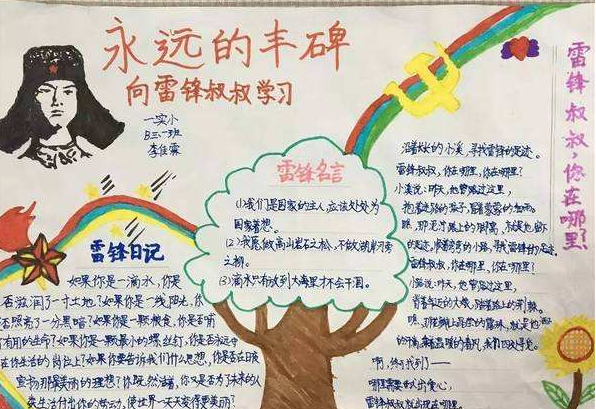 永远的丰碑
向雷锋叔叔学习
一实小
日三.一班
雷锋名言
(1)我们是国家的主人,应该处处为
国家着想。
(2)我愿做高山岩石之松,不做湖岸河旁
之柳。
(3)滴水只有放到大海里才不会干涸。
雷锋日记
如果你是一滴水,你是
否滋润了一寸土地?如果你是一线阳光,你
否照亮了一分黑暗?如果你是一颗粮食,你是否哺
有用的生命?如果你是一颗最小的螺丝钉,你是否永远守
在你生活的岗位上?如果你要告诉我们什么思想,你是否在日夜
宣扬那最美丽的理想?你既然活着,你又是否为了未来的人
类生活付出你的劳动,使世界一天天变得更美丽?
雷锋叔叔,您在哪里
沿着长长的小溪,寻找雷锋的足迹。
雷锋叔叔,你在哪里,你在哪里?
小溪说:昨天,他曾路过这里,
抱着迷路的孩子,冒着蒙蒙的细雨。
瞧,那泥泞路上的脚窝,就是他留下
的足迹。顺着弯弯的小路,寻找雷锋的足迹。
雷锋叔叔,你在哪里,你在哪里?
小路说:昨天,他曾路过这里,
背着年迈的大娘,踏着路上的荆棘。
瞧,那花瓣上晶莹的露珠,就是他洒下
的汗滴。乘着温暖的春风,我们四处寻觅。
啊,终于找到了——
哪里需要献出爱心,
雷锋叔叔就出现在哪里。